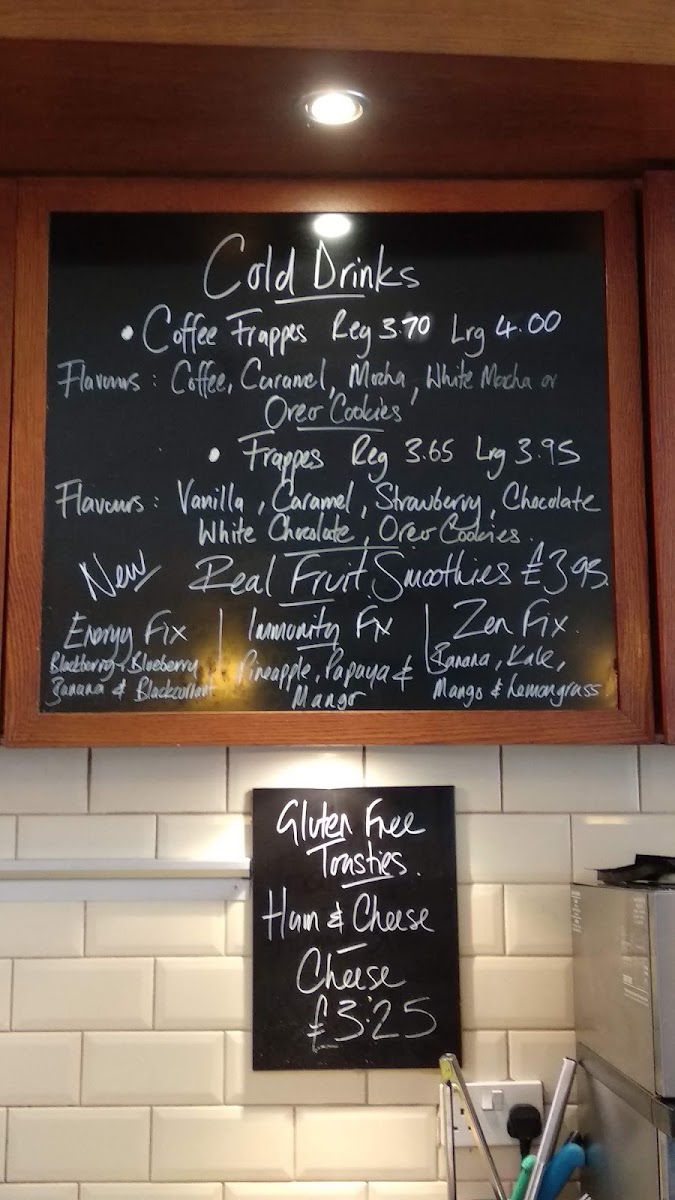 Cold Drinks
• Coffee Frappes Reg 3.70 Lrg 4.00
Flavours : Coffee, Caramel, Mocha, White Mocha or
Oreo Cookies
• Frappes Reg 3.65 Lrg 3.95
Flavours : Vanilla, Caramel, Strawberry, Chocolate
White Chocolate, Oreo Cookies.
New Real Fruit Smoothies £3.95
Energy Fix
Blackberry, Blueberry
Banana & Blackcurrant
Immunity Fix
Pineapple, Papaya &
Mango
Zen Fix.
Banana, Kale,
Mango & Lemongrass
Gluten Free
Toasties.
Ham & Cheese
Cheese
£3.25